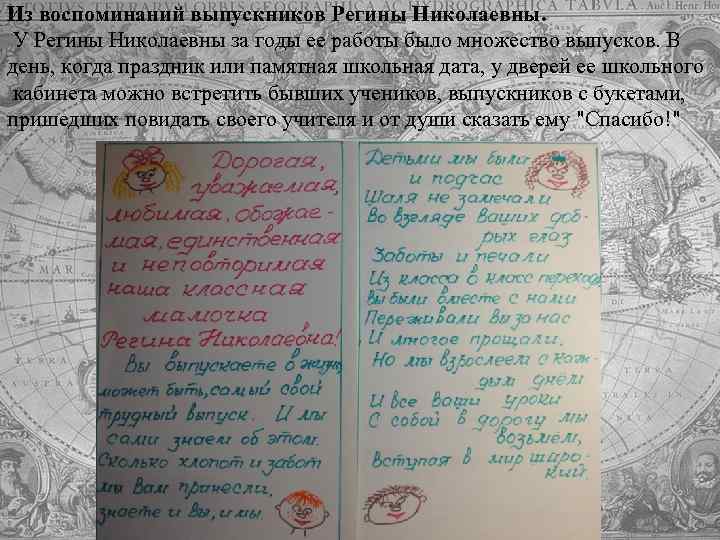 Из воспоминаний выпускников Регины Николаевны.
У Регины Николаевны за годы ее работы было множество выпусков. В
день, когда праздник или памятная школьная дата, у дверей ее школьного
кабинета можно встретить бывших учеников, выпускников с букетами,
пришедших повидать своего учителя и от души сказать ему "Спасибо!"
Дорогая,
уважаемая,
любимая, обожае-
мая, единственная
и неповторимая
наша классная
мамочка
Регина Николаевна!
Вы выпускаете в жизнь
может быть, самый свой
трудный выпуск. И мы
сами знаем об этом.
Сколько хлопот и забот
мы Вам принесли,
знаете и вы, и мы.
Детьми мы были
и подчас
Шаля не замечали
Во взгляде Ваших доб-
рых глаз
Заботы и печали
Из класса в класс переходя
Вы были вместе с нами
Переживали вы за нас
И многое прощали.
Но мы взрослеем с каж-
дым днём
И все Ваши уроки
С собой в дорогу мы
возьмём,
Вступая в мир широ-
кий.